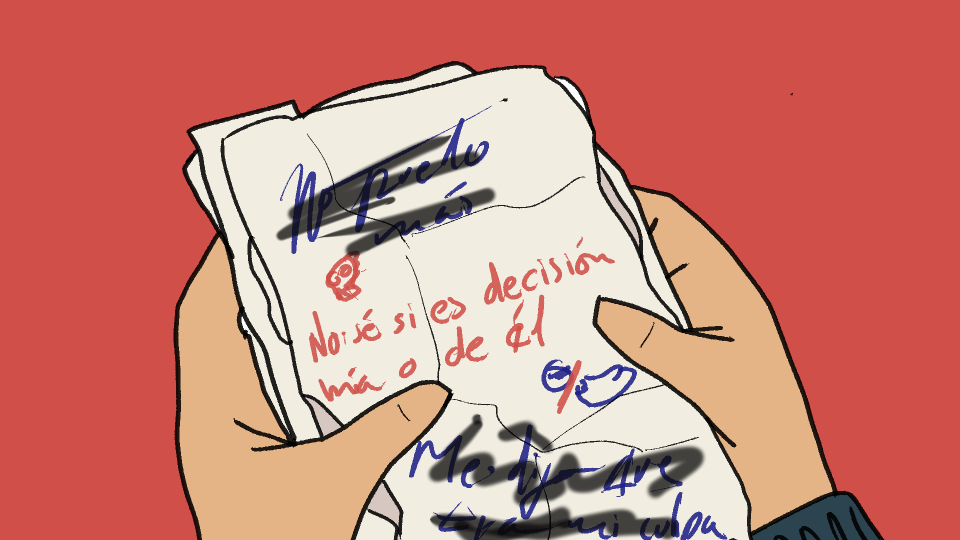 No puedo
más
No sé si es decisión
mía o de él
Me dijo que
era mi culpa